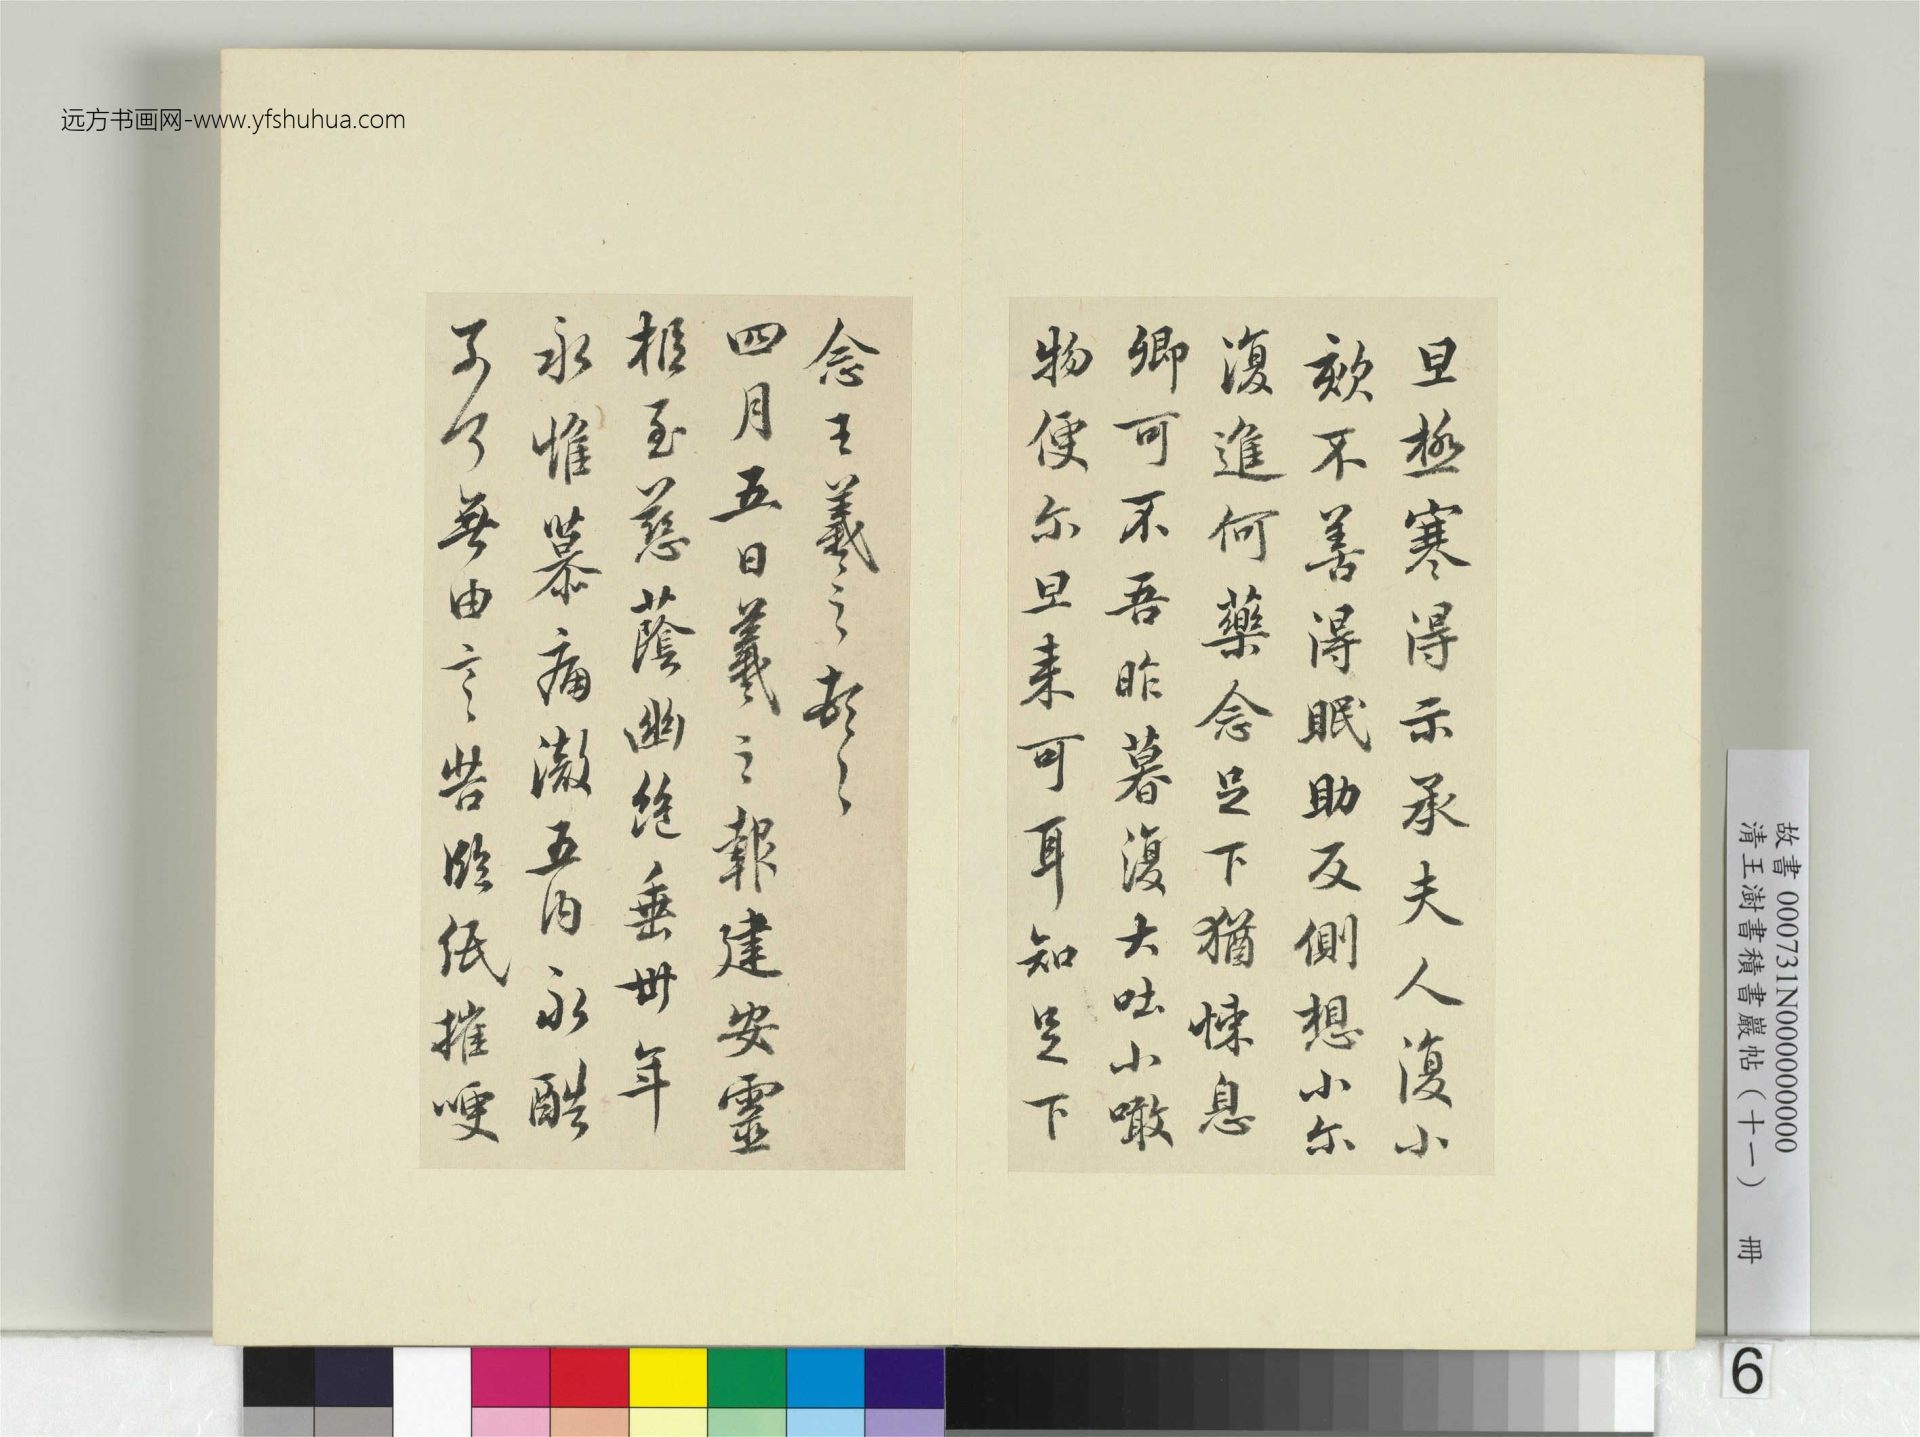 远方书画网-www.yfshuhua.com
旦極寒得示承夫人復小
欬不善得眠助反側想小尔
復進何藥念足下猶悚息
卿可不吾昨暮復大吐小噉
物便尔旦來可耳知足下
念王羲之頓〻
四月五日羲之報建安靈
柩至慈蔭幽絕垂卅年
永惟慕痛澈五內永酷
奈何無由言〻苦臨紙摧哽
故書 000731N000000000
清王澍書積書巖帖（十一） 冊
6